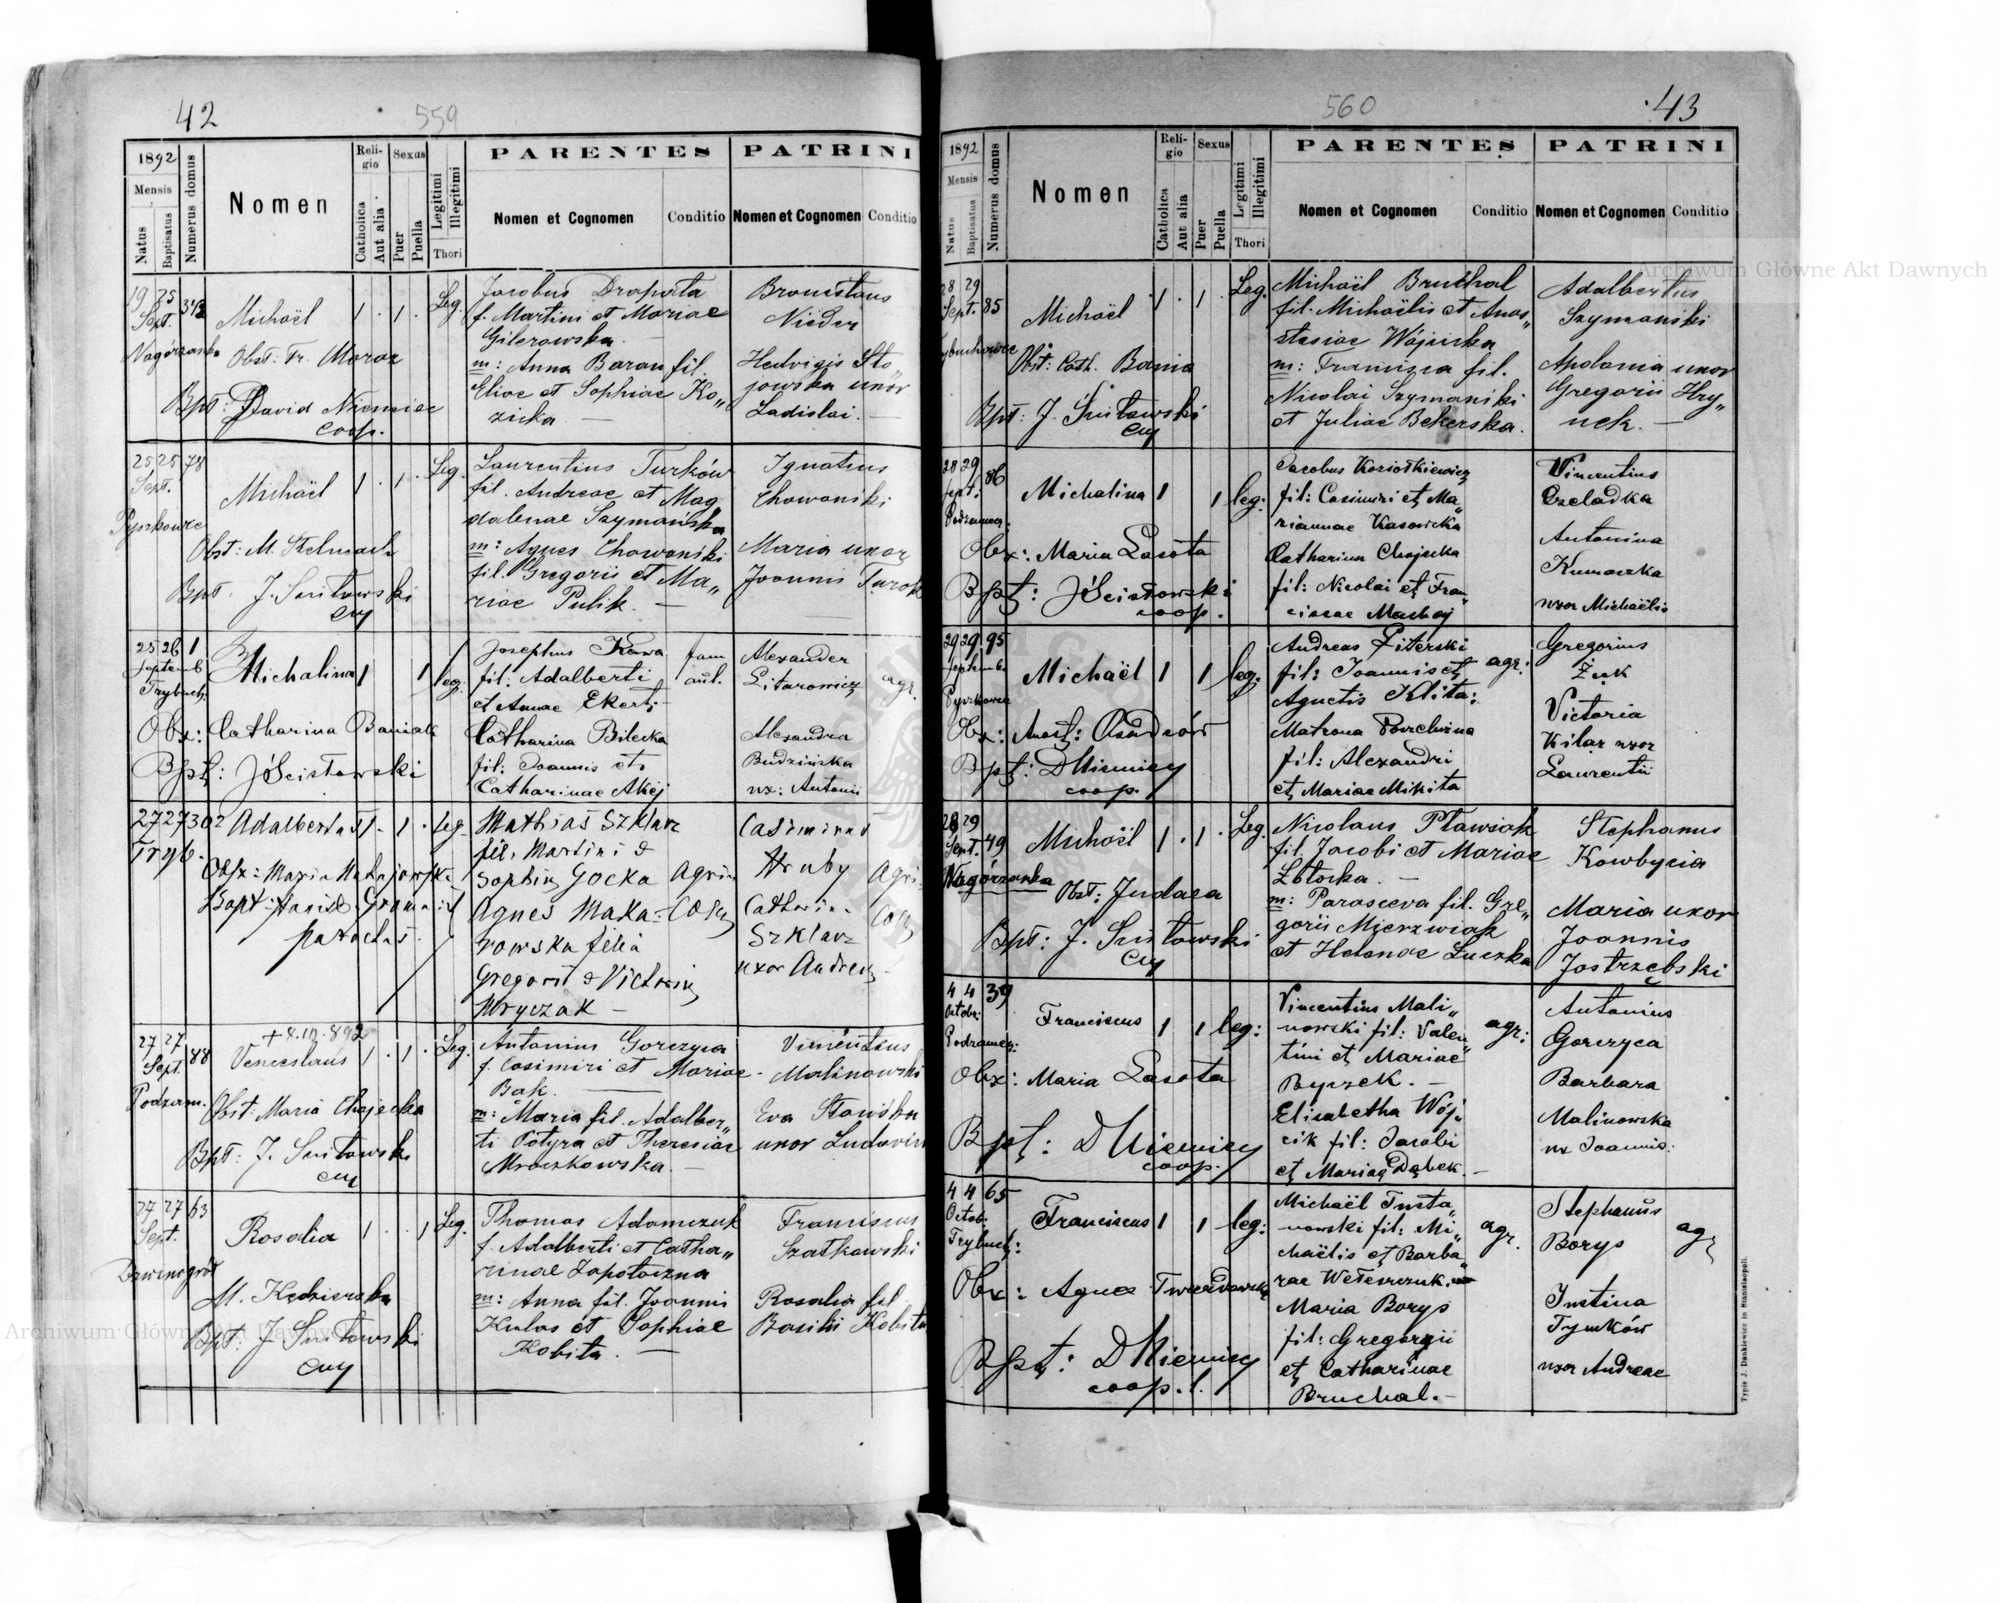 42
559
1892
Mensis
Natus
Baptisatus
Numerus domus
Nomen
Religio
Catholica
Aut alia
Sexus
Puer
Puella
Legitimi
Illegitimi
Thori
PARENTES
Nomen et Cognomen
Conditio
PATRINI
Nomen et Cognomen
Conditio
19 25 343
Sept.
Nagórzanka
Michaël 1 . 1 . Leg.
Obst: Tr. Moroz
Bpt: David Niemiec
coop.
Jacobus Draparta
f. Martini et Mariae
Gilerowska.
m: Anna Baran fil.
Eliae et Sophiae Ko„
zicka —
Bronislaus
Nieder
Hedvigis Sto„
jowska uxor
Ladislai. —
25 25 78
Sept.
Pyszkowce
Michaël 1 . 1 . Leg.
Obst: M. Stelmach
Bpt. J. Scistowski
Laurentius Turków
fil. Andreae et Mag
dalenae Szymańska
m: Agnes Chowański
fil. Gregorii et Ma„
riae Pulik. —
Ignatius
Chowański
Maria uxor
Joannis Turok
25 26 1
Septemb.
Trybuch.
Michalina 1 1 leg.
Obx: Catharina Baniak
Bpt: J Scistowski
Josephus Kawa
fil: Adalberti
et Annae Ekert:
Catharina Bilecka
fil: Joannis et
Catharinae Akij
fam
aul.
Alexander
Litarowicz agr.
Alexandra
Budzińska
ux: Antonii
27 27 302
Tryb.
Adalbertus 1 . 1 . Leg.
parochus.
Mathias Szklarz
fil. Martini &
Sophia Gocka Agri
Agnes Maka- cola
rowska filia
Gregorii & Victoria
Wryczak —
Casimirus
Hruby Agri
Catharin-
Szklarz
uxor Andreas
27 27 88
Sept.
Podzam.
Venceslaus 1 . 1 . Leg.
Obst: Maria Chajecka
Bpt: J. Scistowski
Antonius Gorczyca
f. Casimiri et Mariae
Bak.
m: Maria fil. Adalber„
ti Potyra et Theresiae
Mroczkowska. —
Vincentius
Malinowski
Eva Stawska
uxor Ludovici
27 27 63
Sept.
Dzwinogród
Rosalia 1 . . 1 Leg.
M. Kędzierska
Bpt: J Scistowski
Thomas Adamczuk
f. Adalberti et Catha„
rinae Zapotoczna
m: Anna fil. Joannis
Kulas et Sophiae
Kobita. —
Franciscus
Szatkowski
Rosalia fil.
Basilii Kobita
43
560
1892
Mensis
Natus
Baptisatus
Numerus domus
Nomen
Religio
Catholica
Aut alia
Sexus
Puer
Puella
Legitimi
Illegitimi
Thori
PARENTES
Nomen et Cognomen
Conditio
PATRINI
Nomen et Cognomen
Conditio
28 29
Sept. 85
Michaël 1 . 1 . Leg.
Obst: Cath. Bania
Bpt: J. Scistowski
Michaël Bruchal
fil. Michaëlis et Anas„
stasiae Wójcicka
m: Francisca fil.
Nicolai Szymański
et Juliae Bekerska.
Adalbertus
Szymański
Apolonia uxor
Gregorii Hry„
nek. —
28 29 86
Sept:
Podzamcz.
Michalina 1 1 leg:
Obx: Maria Lasota
Bpt: J Scistowski
coop.
Jacobus Koziołkiewicz
fil: Casimiri et Ma„
riannae Kasowicka
Catharina Chajecka
fil: Nicolai et Fran„
ciscae Machaj
Vincentius
Czeladka
Antonina
Kumaszka
uxor Michaëlis
29 29 95
Septemb.
Pyszkowce
Michaël 1 1 leg:
Bpt: D Niemiec
coop.
Andreas Literski
fil: Joannis et agr:
Agnetis Klita:
Matrona Powchwina
fil: Alexandri
et Mariae Mikita
Gregorius
Żuk
Victoria
Kilar uxor
Laurentii
28 29
Sept. 49
Nagórzanka
Michaël 1 . 1 . Leg.
Obst: Judaea
Bpt: J. Scistowski
Nicolaus Pławiak
fil. Jacobi et Mariae
Złotocka. —
m: Parasceva fil. Gre„
gorii Mierzwiak
et Helenae Luczka
Stephanus
Kowbycia
Maria uxor
Joannis
Jastrzębski
4 4 39
Octobr:
Podzamcz:
Franciscus 1 1 leg:
Obx: Maria Lasota
Bpt: D Niemiec
coop.
Vincentius Mali„
nowski fil: Valen„ agr:
tini et Mariae
Byczek. —
Elisabetha Wój„
cik fil: Jacobi
et Mariae Dąbek. —
Antonius
Gorczyca
Barbara
Malinowska
ux Joannis:
4 4 65
Octob:
Trybuch:
Franciscus 1 1 leg:
Obx: Agnes Twerdowska
Bpt: D Niemiec
coop. l.
Michaël Trusta„
nowski fil: Mi„ agr.
chaëlis et Barba„
rae Weterczuk:
Maria Borys
fil: Gregorii
et Catharinae
Bruchal. —
Stephanus
Borys agr
Justina
Tymków
uxor Andreae
Typis J. Dankiewicz in Stanislaopoli.
Archiwum Główne Akt Dawnych
Archiwum Główne Akt Dawnych